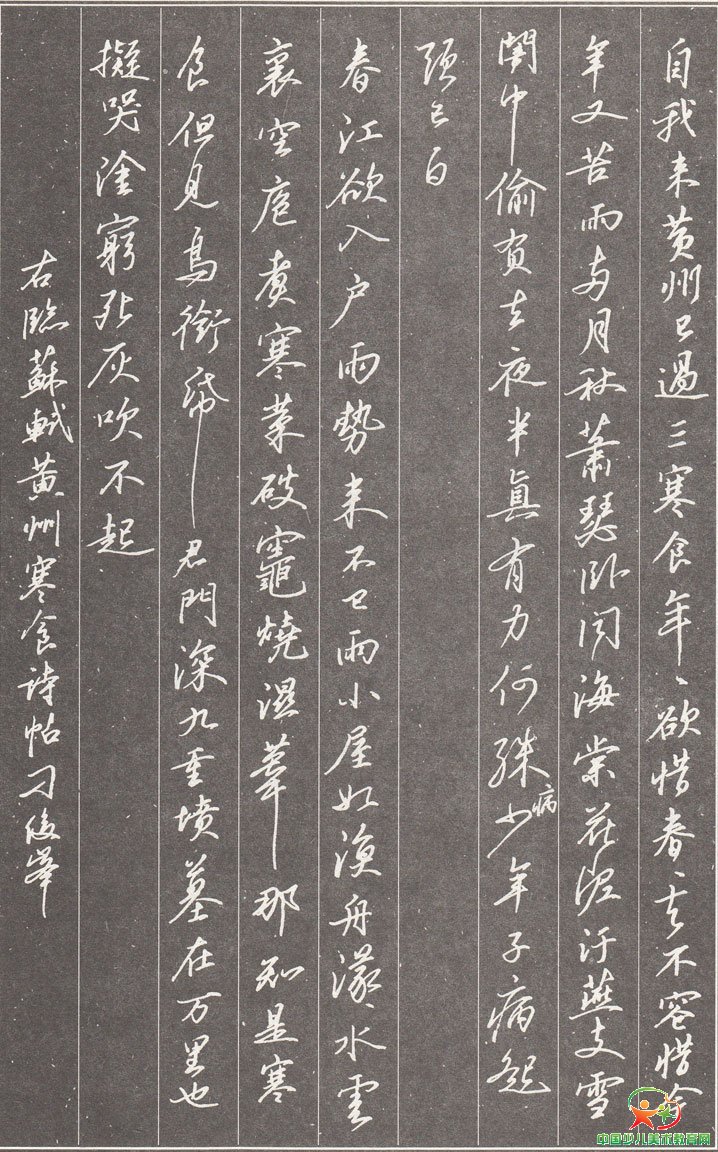 自我来黄州已過三寒食年〻欲惜春〻去不容惜今
年又苦雨两月秋蕭瑟卧闻海棠花泥汙燕支雪
闇中偷負去夜半真有力何殊少年子病起
頭已白
病
春江欲入户雨勢来不已雨小屋如渔舟濛〻水雲
裏空庖煮寒菜破竈燒濕葦那知是寒
食但見烏銜帋君門深九重墳墓在万里也
擬哭塗窮死灰吹不起
右臨蘇軾黄州寒食诗帖
中国少儿美术教育网